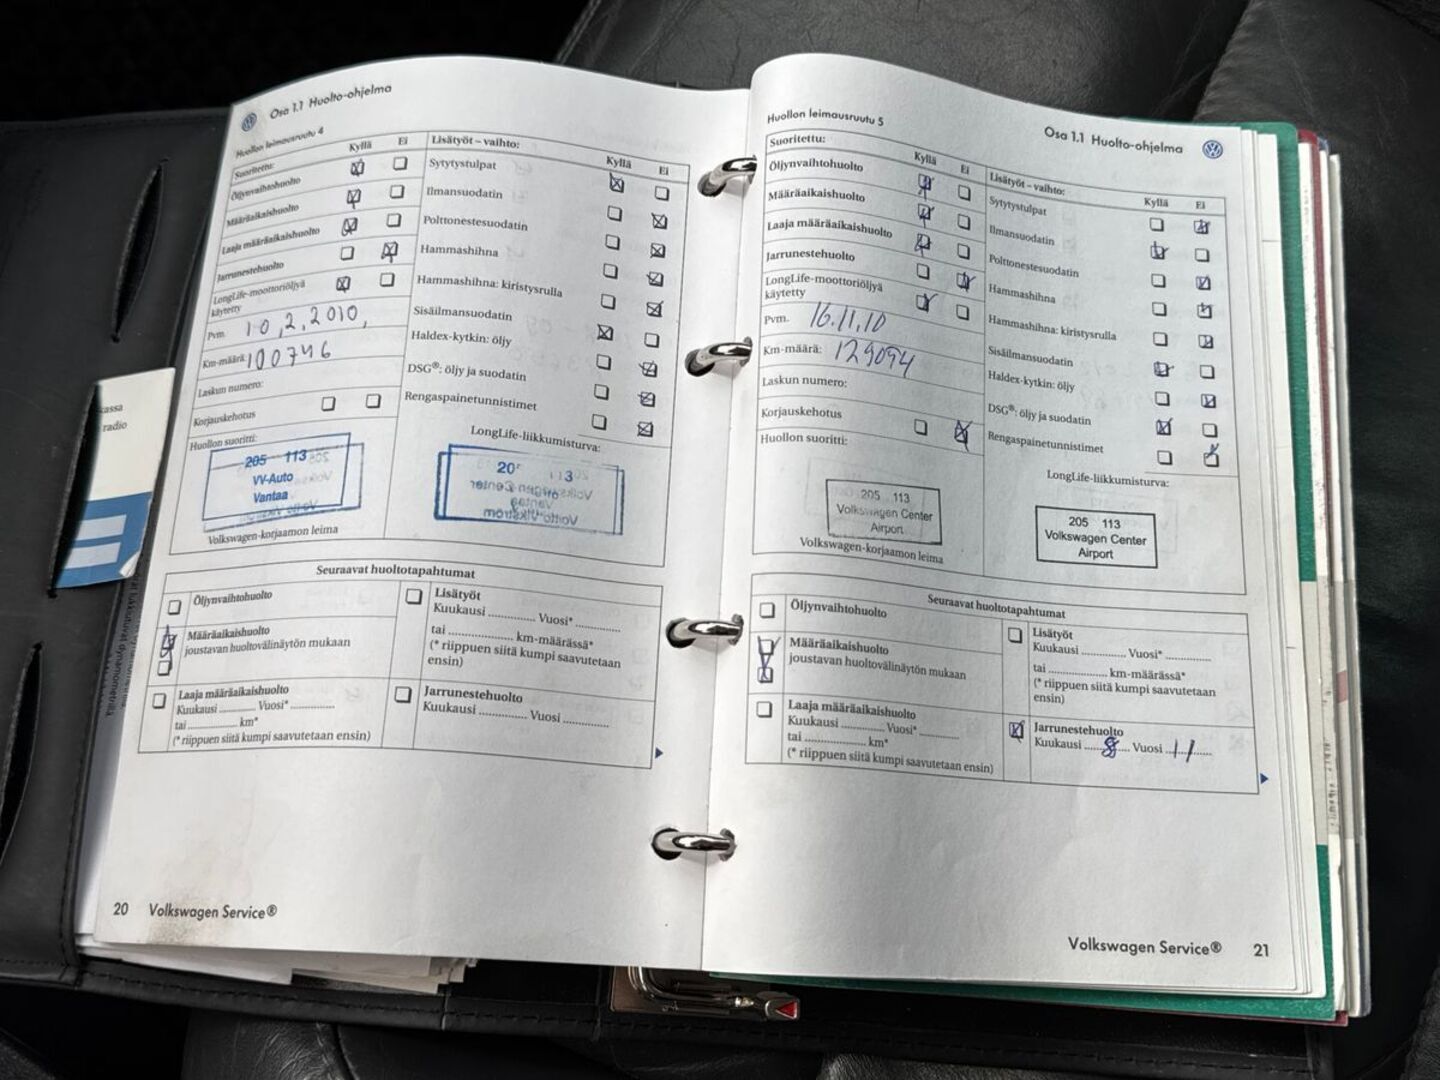 Osa 1.1 Huolto-ohjelma
Huollon leimausruutu 4
Suoritettu:
Kyllä
Ei
Öljynvaihtohuolto
Määräaikaishuolto
Laaja määräaikaishuolto
Jarrunestehuolto
LongLife-moottoriöljyä
käytetty
Pvm. 10,2,2010,
Km-määrä: 100746
Laskun numero:
Korjauskehotus
Huollon suoritti:
205 113
VV-Auto
Vantaa
Volkswagen-korjaamon leima
Lisätyöt – vaihto:
Kyllä
Ei
Sytytystulpat
Ilmansuodatin
Polttonestesuodatin
Hammashihna
Hammashihna: kiristysrulla
Sisäilmansuodatin
Haldex-kytkin: öljy
DSG®: öljy ja suodatin
Rengaspainetunnistimet
LongLife-liikkumisturva:
20
113
Seuraavat huoltotapahtumat
Öljynvaihtohuolto
Määräaikaishuolto
joustavan huoltovälinäytön mukaan
Laaja määräaikaishuolto
Kuukausi ............. Vuosi* .............
tai ............. km*
(* riippuen siitä kumpi saavutetaan ensin)
Lisätyöt
Kuukausi ............. Vuosi* .............
tai ..................... km-määrässä*
(* riippuen siitä kumpi saavutetaan
ensin)
Jarrunestehuolto
Kuukausi ............. Vuosi .............
20 Volkswagen Service®
Huollon leimausruutu 5
Osa 1.1 Huolto-ohjelma
Suoritettu:
Kyllä
Ei
Öljynvaihtohuolto
Määräaikaishuolto
Laaja määräaikaishuolto
Jarrunestehuolto
LongLife-moottoriöljyä
käytetty
Pvm. 16.11.10
Km-määrä: 129094
Laskun numero:
Korjauskehotus
Huollon suoritti:
205 113
Volkswagen Center
Airport
Volkswagen-korjaamon leima
Lisätyöt – vaihto:
Kyllä
Ei
Sytytystulpat
Ilmansuodatin
Polttonestesuodatin
Hammashihna
Hammashihna: kiristysrulla
Sisäilmansuodatin
Haldex-kytkin: öljy
DSG®: öljy ja suodatin
Rengaspainetunnistimet
LongLife-liikkumisturva:
205 113
Volkswagen Center
Airport
Seuraavat huoltotapahtumat
Öljynvaihtohuolto
Määräaikaishuolto
joustavan huoltovälinäytön mukaan
Laaja määräaikaishuolto
Kuukausi ............. Vuosi* .............
tai ............. km*
(* riippuen siitä kumpi saavutetaan ensin)
Lisätyöt
Kuukausi ............. Vuosi* .............
tai ..................... km-määrässä*
(* riippuen siitä kumpi saavutetaan
ensin)
Jarrunestehuolto
Kuukausi 8 Vuosi 11
Volkswagen Service® 21
radio